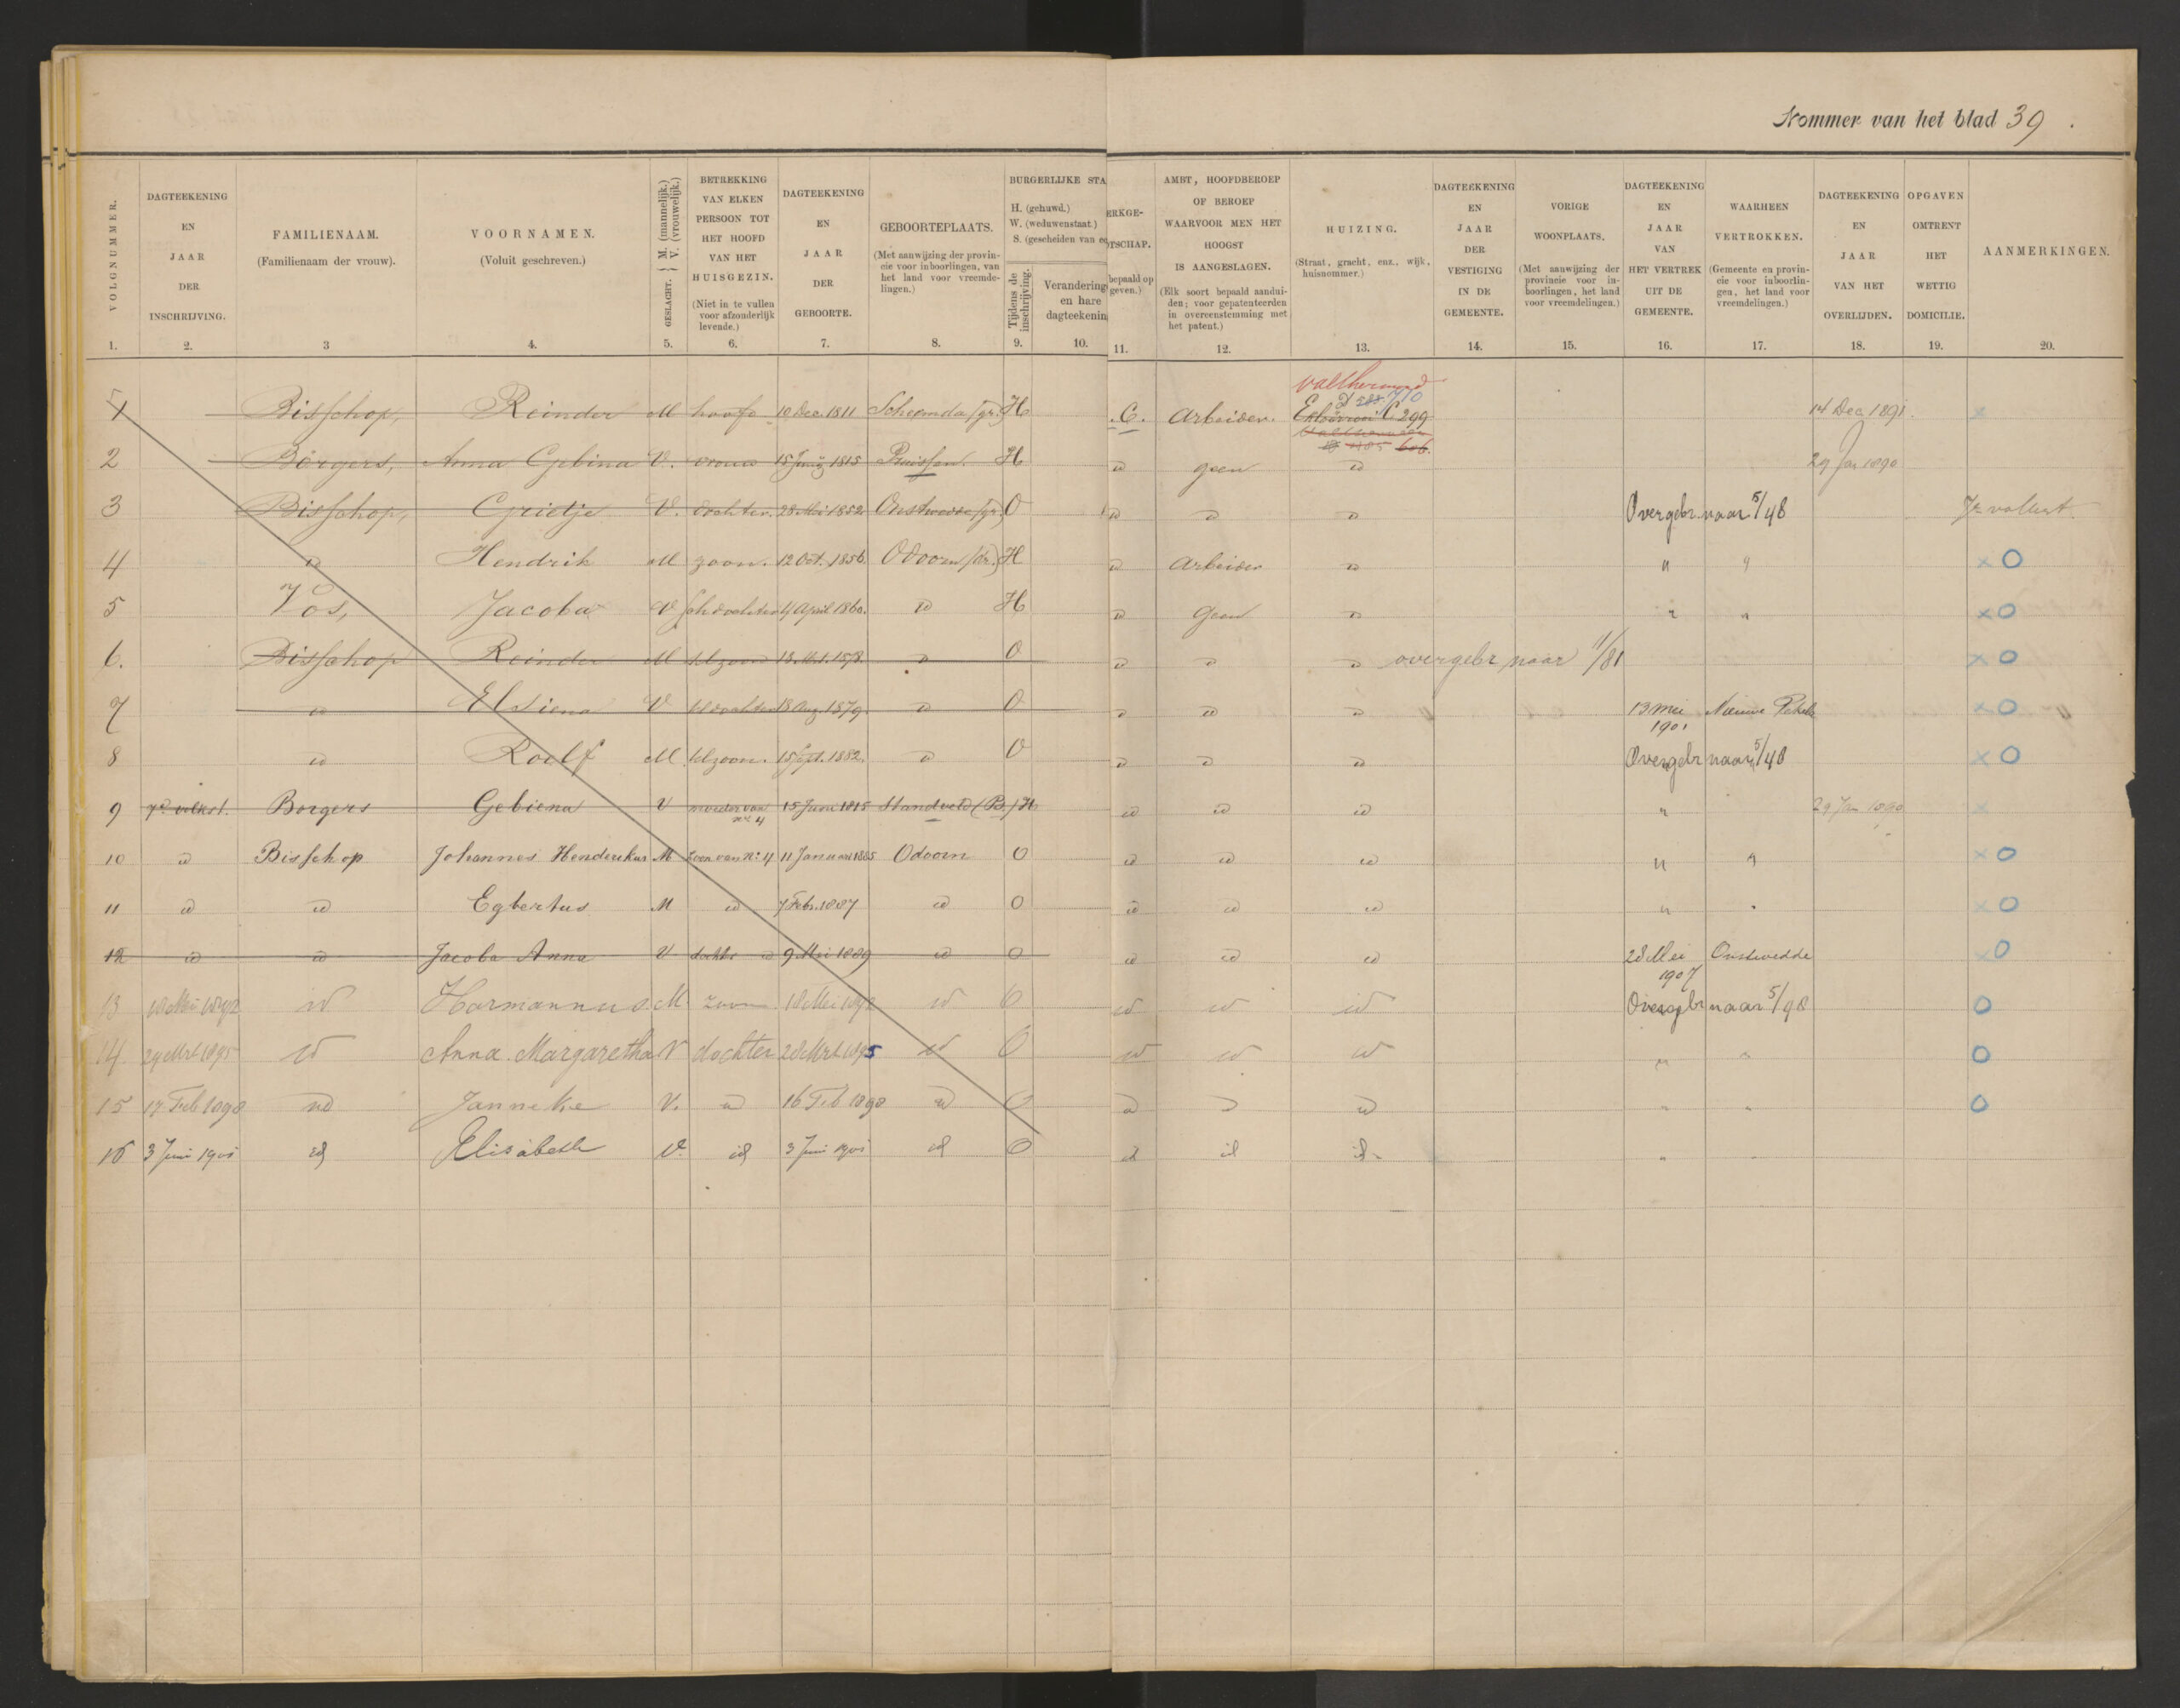 Nommer van het blad 39.
VOLGNUMMER.
DAGTEEKENING EN JAAR DER INSCHRIJVING.
FAMILIENAAM. (Familienaam der vrouw).
VOORNAMEN. (Voluit geschreven.)
GESLACHT. M. (mannelijk.) V. (vrouwelijk.)
BETREKKING VAN ELKEN PERSOON TOT HET HOOFD VAN HET HUISGEZIN. (Niet in te vullen voor afzonderlijk levende.)
DAGTEEKENING EN JAAR DER GEBOORTE.
GEBOORTEPLAATS. (Met aanwijzing der provincie voor inboorlingen, van het land voor vreemdelingen.)
BURGERLIJKE STA
H. (gehuwd.)
W. (weduwenstaat.)
S. (gescheiden van ec
Tijdens de inschrijving.
Verandering en hare dagteekenin
ERKGE-
TSCHAP.
bepaald op
geven.)
AMBT, HOOFDBEROEP OF BEROEP WAARVOOR MEN HET HOOGST IS AANGESLAGEN. (Elk soort bepaald aanduiden; voor gepatenteerden in overeenstemming met het patent.)
HUIZING. (Straat, gracht, enz., wijk, huisnommer.)
DAGTEEKENING EN JAAR DER VESTIGING IN DE GEMEENTE.
VORIGE WOONPLAATS. (Met aanwijzing der provincie voor inboorlingen, het land voor vreemdelingen.)
DAGTEEKENING EN JAAR VAN HET VERTREK UIT DE GEMEENTE.
WAARHEEN VERTROKKEN. (Gemeente en provincie voor inboorlingen, het land voor vreemdelingen.)
DAGTEEKENING EN JAAR VAN HET OVERLIJDEN.
OPGAVEN OMTRENT HET WETTIG DOMICILIE.
AANMERKINGEN.
1. 2. 3 4. 5. 6. 7. 8. 9. 10. 11. 12. 13. 14. 15. 16. 17. 18. 19. 20.
Valthermond
D 710
1 Bisschop, Reinder M hoofd 10 Dec. 1811 Scheemda (gr.) H C. Arbeider. Exloërveen C 299 14 Dec 1891. x
606.
2 Börgers, Anna Gebina V. vrouw 15 Junij 1815 Pruissen. H id geen id 29 Jan 1890
3 Bisschop, Grietje V. dochter. 28 Mei 1852 Onstwedde (gr.) O id id id Overgebr. naar 5/48
4 id Hendrik M zoon. 12 Oct. 1856 Odoorn (dr.) H id Arbeider id " " x O
5 Vos, Jacoba V schdochter 4 April 1860. id H id Geen id " " x O
6. Bisschop Reinder M klzoon id O id id id overgebr naar 1/81 x O
7 id Elsiena V kldochter 18 Aug. 1879. id O id id id 13 Mei 1901 Nieuwe Pekela x O
8 id Roelf M klzoon. 15 Sept. 1882. id O id id id Overgebr naar 5/48 x O
9 7e volkst. Borgers Gebiena V moeder van no 4 15 Juni 1815 H id id id " 29 Jan 1890 x
10 id Bisschop Johannes Henderikus M Zoon van No 4 11 Januari 1885 Odoorn O id id id " " x O
11 id id Egbertus M id 7 Febr. 1887 id O id id id " " x O
12 id id Jacoba Anna V dochter id 9 Mei 1889 id O id id id 28 Mei 1907 Onstwedde x O
13 18 Mei 1892 id Harmannus M. zoon 18 Mei 1892 id O id id id Overgebr naar 5/48 O
14. 29 Mrt 1895 id Anna Margaretha V dochter 28 Mrt 1895 id O id id id " " O
15 17 Feb 1898 id Janneke V. id 16 Feb 1898 id O id id id " " O
16 3 Juni 1901 id Elisabeth V. id 3 Juni 1901 id O id id id " "